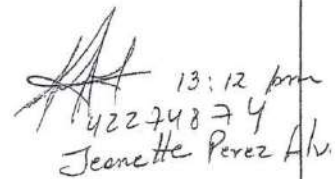 13:12 pm
42274874
Jeanette Perez Alv.